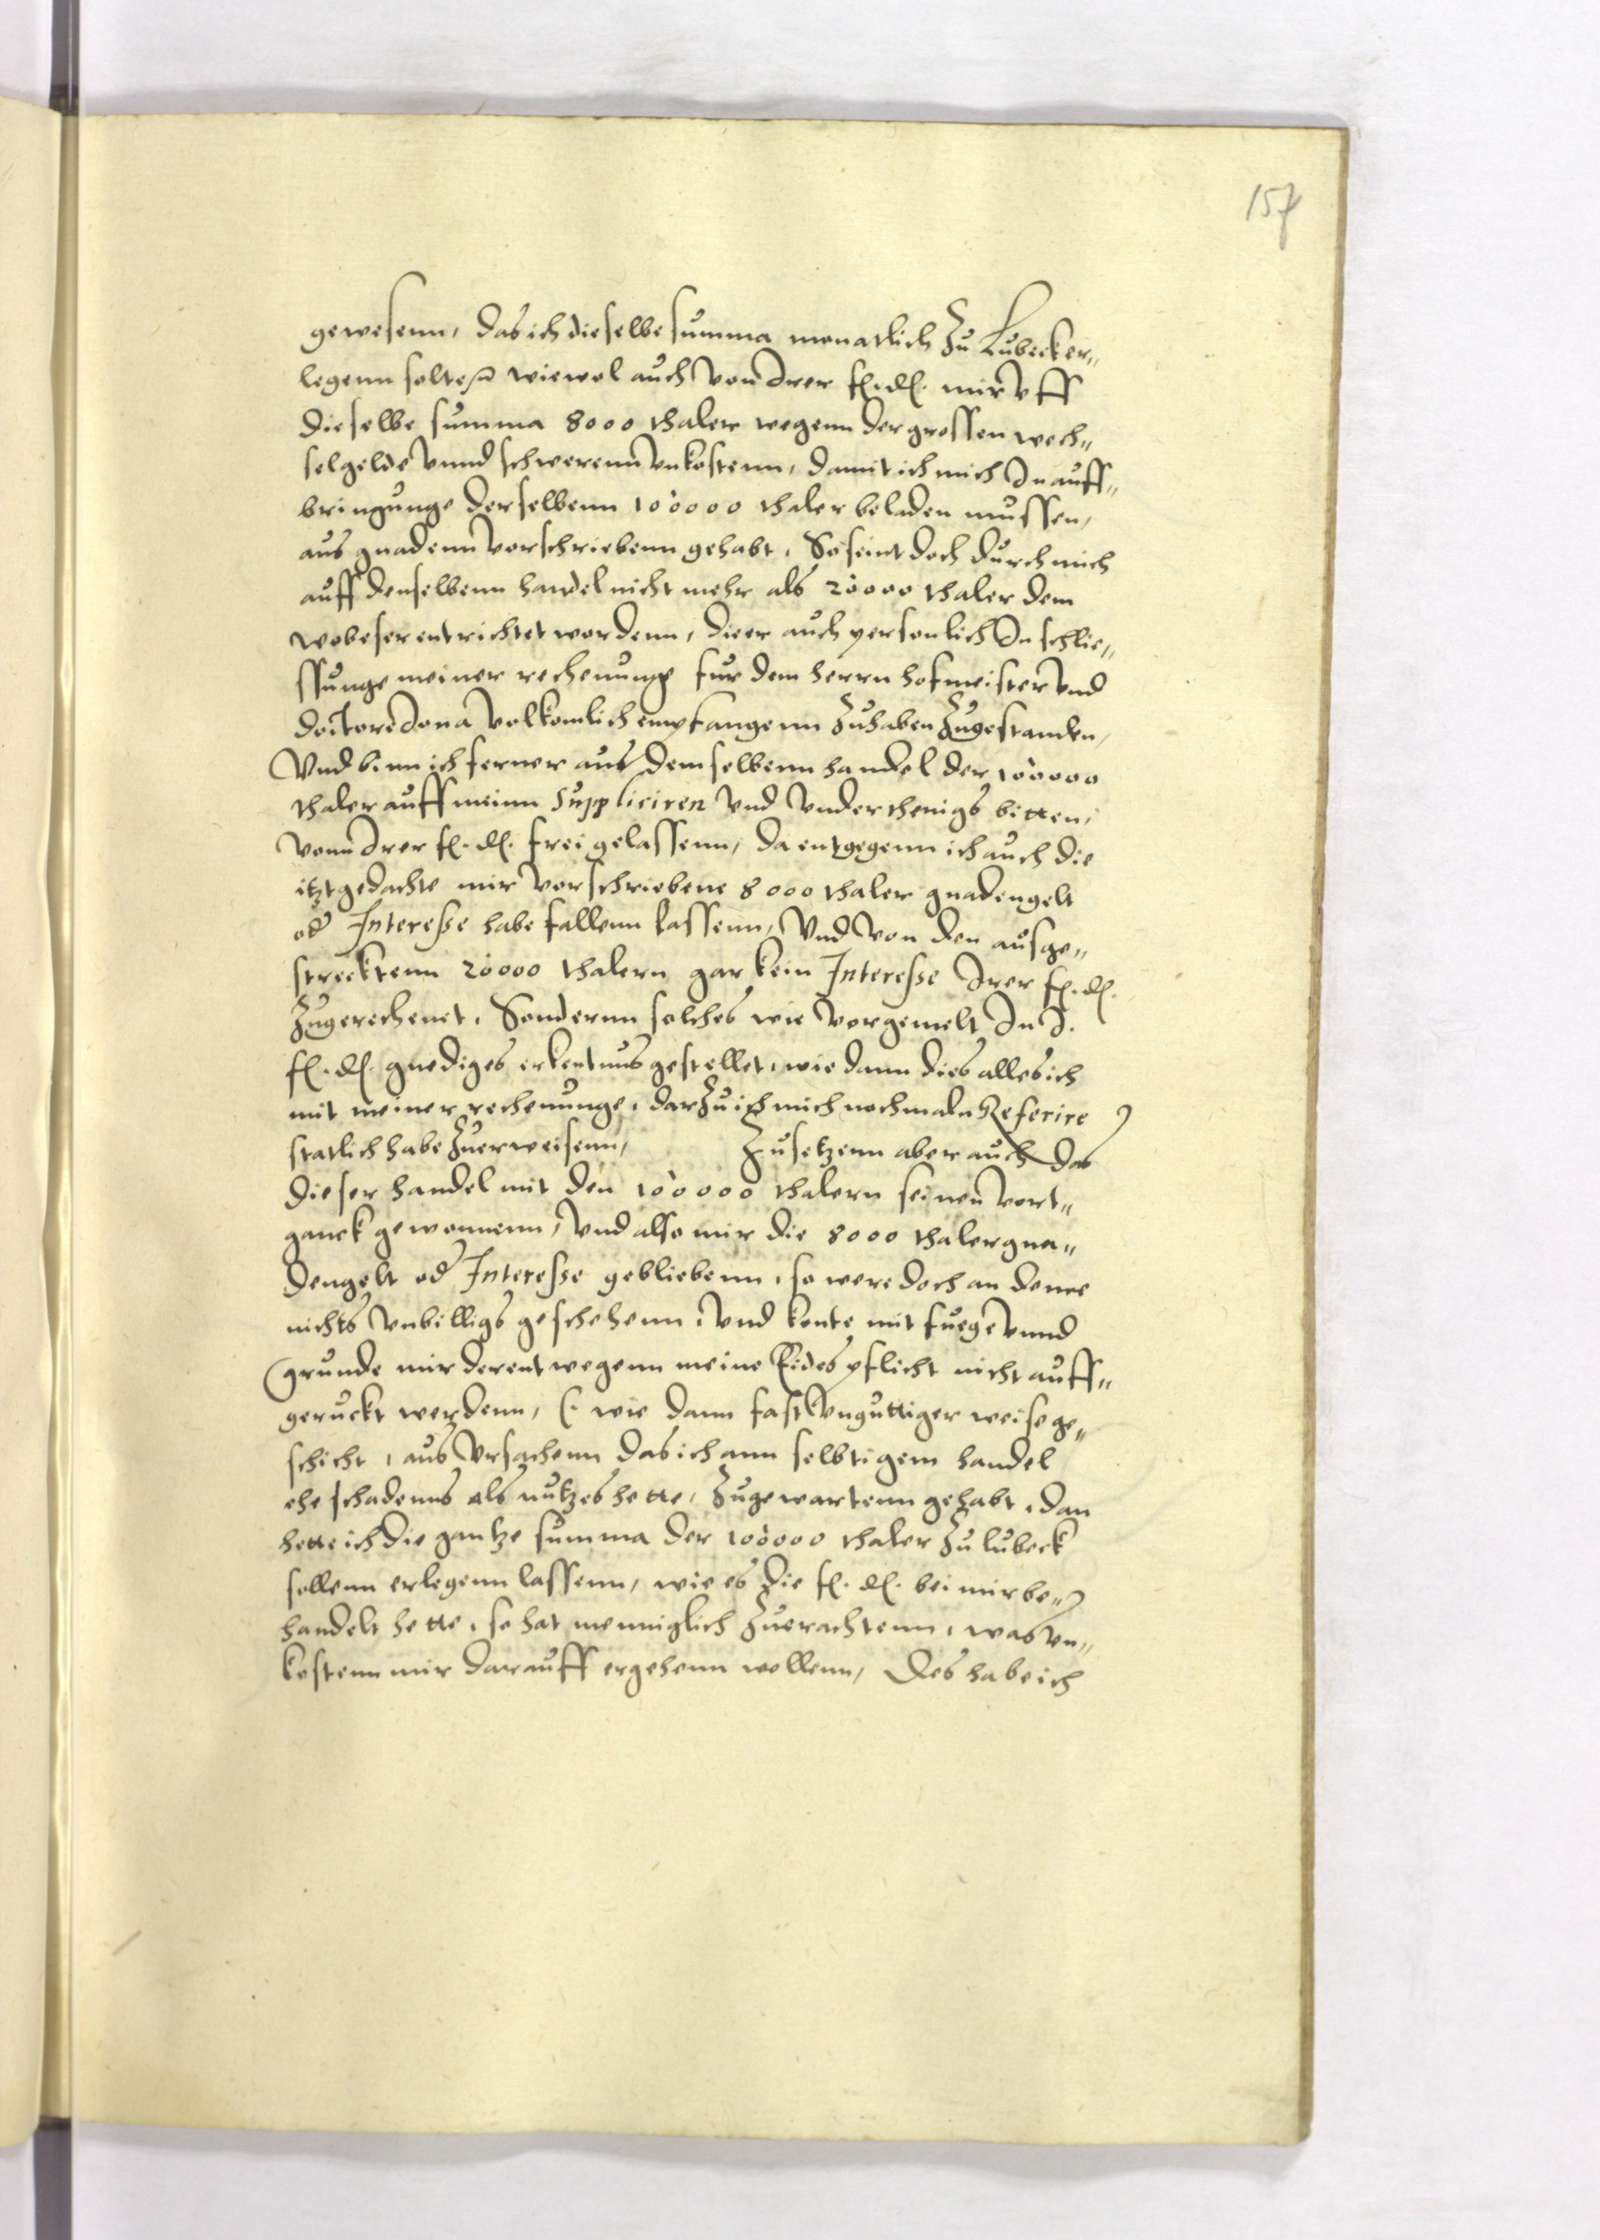 157
gewesenn, das ich dieselbe summa monatlich zu Lubeck er„
legenn solte, wiewol auch von Irer fl. dl. mir vff
dieselbe summa 8000 thaler wegenn der grossen wech„
selgelde vnnd schwerenn vnkostenn, damit ich mich In auff„
bringunge derselbenn 100000 thaler beladen mussen,
aus gnadenn vorschriebenn gehabt, So seint doch durch mich
auff denselbenn handel nicht mehr als 20000 thaler dem
wobeser entrichtet wordenn, die er auch personlich In schlie„
ssunge meiner rechenunge fur dem herrn hofmeister vnd
doctore Jona volkomlich empfangenn zuhaben zugestanden,
Vnd binn ich ferner aus demselbenn handel der 100000
thaler auff meinn Suppliciren vnd vnderthenigs bitten,
vonn Irer fl. dl. frei gelassenn, da entgegenn ich auch die
itzt gedachte mir vorschriebene 8000 thaler gnadengelt
od Interesse habe fallenn lassenn, Vnd von den ausge„
strecktenn 20000 thalern gar kein Interesse Irer fl. dl.
zugerechenet, Sondernn solches wie vorgemelt In I.
fl. dl. gnediges erkentnus gestellet, wie dann dies alles ich
mit meiner rechenunge, darzu ich mich nochmaln Referire
statlich habe zuerweisenn, Zusetzenn aber auch das
dieser handel mit den 100000 thalern seinen vort„
ganck gewonnenn, vnd also mir die 8000 thaler gna„
dengelt od Interesse gebliebenn, so were doch an deme
nichts vnbilligs geschehenn, vnd konte mit fuege vnnd
grunde mir derentwegenn meine Eidespflicht nicht auff„
geruckt werdenn, (: wie dann fast vnguttiger weise ge„
schicht, aus vrsachenn das ich ann selbtigem handel
ehe schadenns als nutzes hette, zugewartenn gehabt, dan
hette ich die gantze summa der 100000 thaler zu lubeck
sollenn erlegenn lassenn, wie es die fl. dl. bei mir be„
handelt hette, so hat menniglich zuerachtenn, was vn„
kostenn mir darauff ergehenn wollenn, Des habe ich